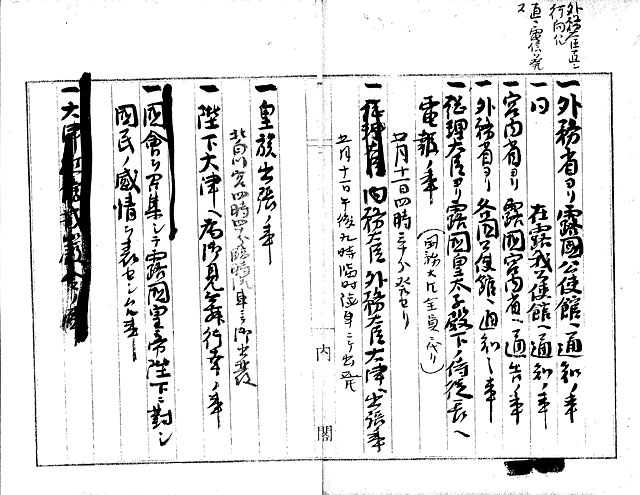 外務大臣直ニ
行向化
直ニ電信ヲ発
ス
一外務省ヨリ露國公使館ヘ通知ノ事
一同 在露我公使館ヘ通知ノ事
一宮内省ヨリ露國宮内省ヘ通告ノ事
一外務省ヨリ各國公使館ヘ通知ノ事
一総理大臣ヨリ露國皇太子殿下ノ侍従長ヘ
電報ノ事
五月十一日四時三十分発セリ
一 内務大臣外務大臣大津ヘ出張ノ事
五月十一日午後九時臨時滊車ニテ出発
一皇族出張ノ事
北白川宮四時四十分臨時滊車ニテ御出発
一陛下大津ヘ為御見舞行幸ノ事
一國會ヲ召集シテ露國皇帝陛下ニ對シ
國民ノ感情ヲ表セシムル事
一大津
内
閣